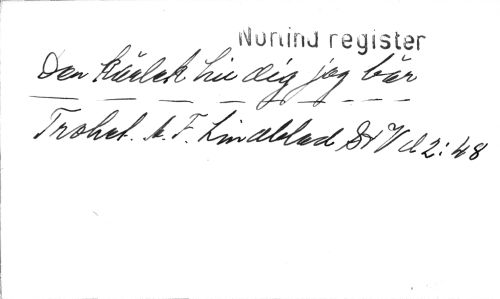 Norlind register
Den kärlek till dig jag bär
Trohet. A. F. Lindblad S+V d 2:48